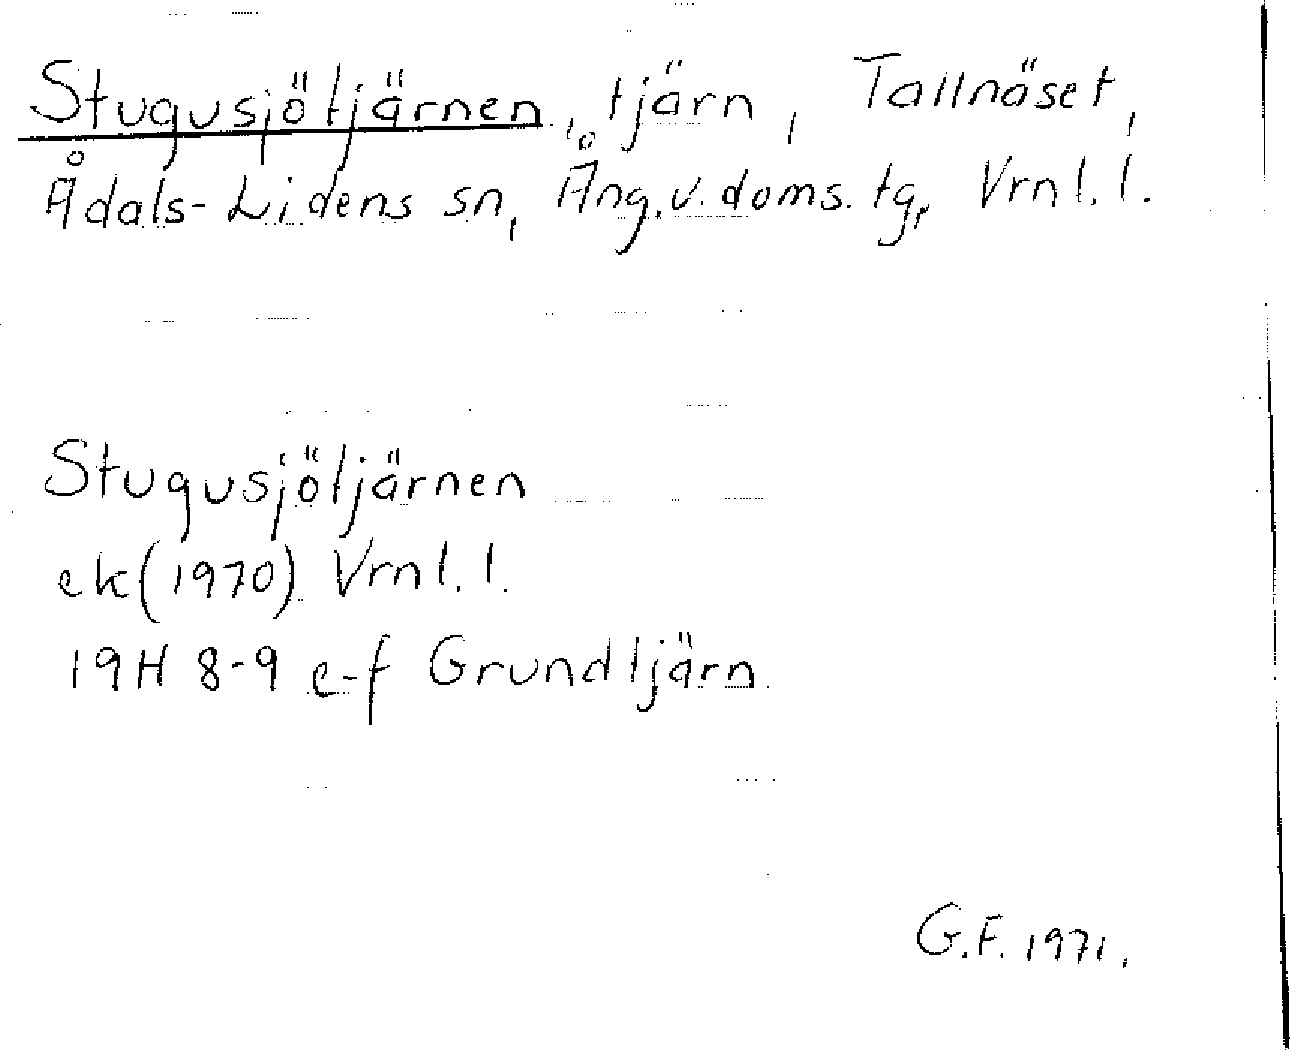 Stugusjötjärnen, tjärn, Tallnäset,
Ådals-Lidens sn, Ång.v.doms.tg, Vrnl.l.
Stugusjötjärnen
ek(1970) Vrnl.l.
19H 8-9 e-f Grundtjärn
G.F. 1971.